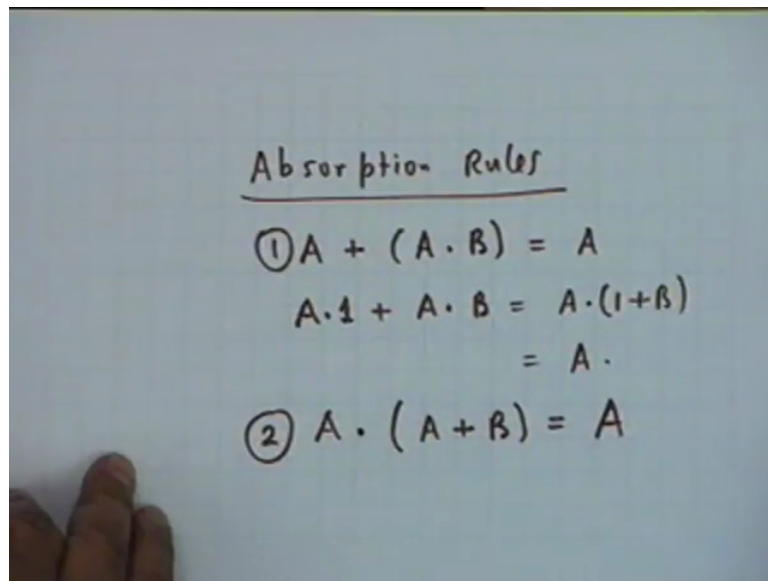 Absorption Rules
① A + (A · B) = A
A·1 + A · B = A·(1+B)
= A ·
② A · (A + B) = A